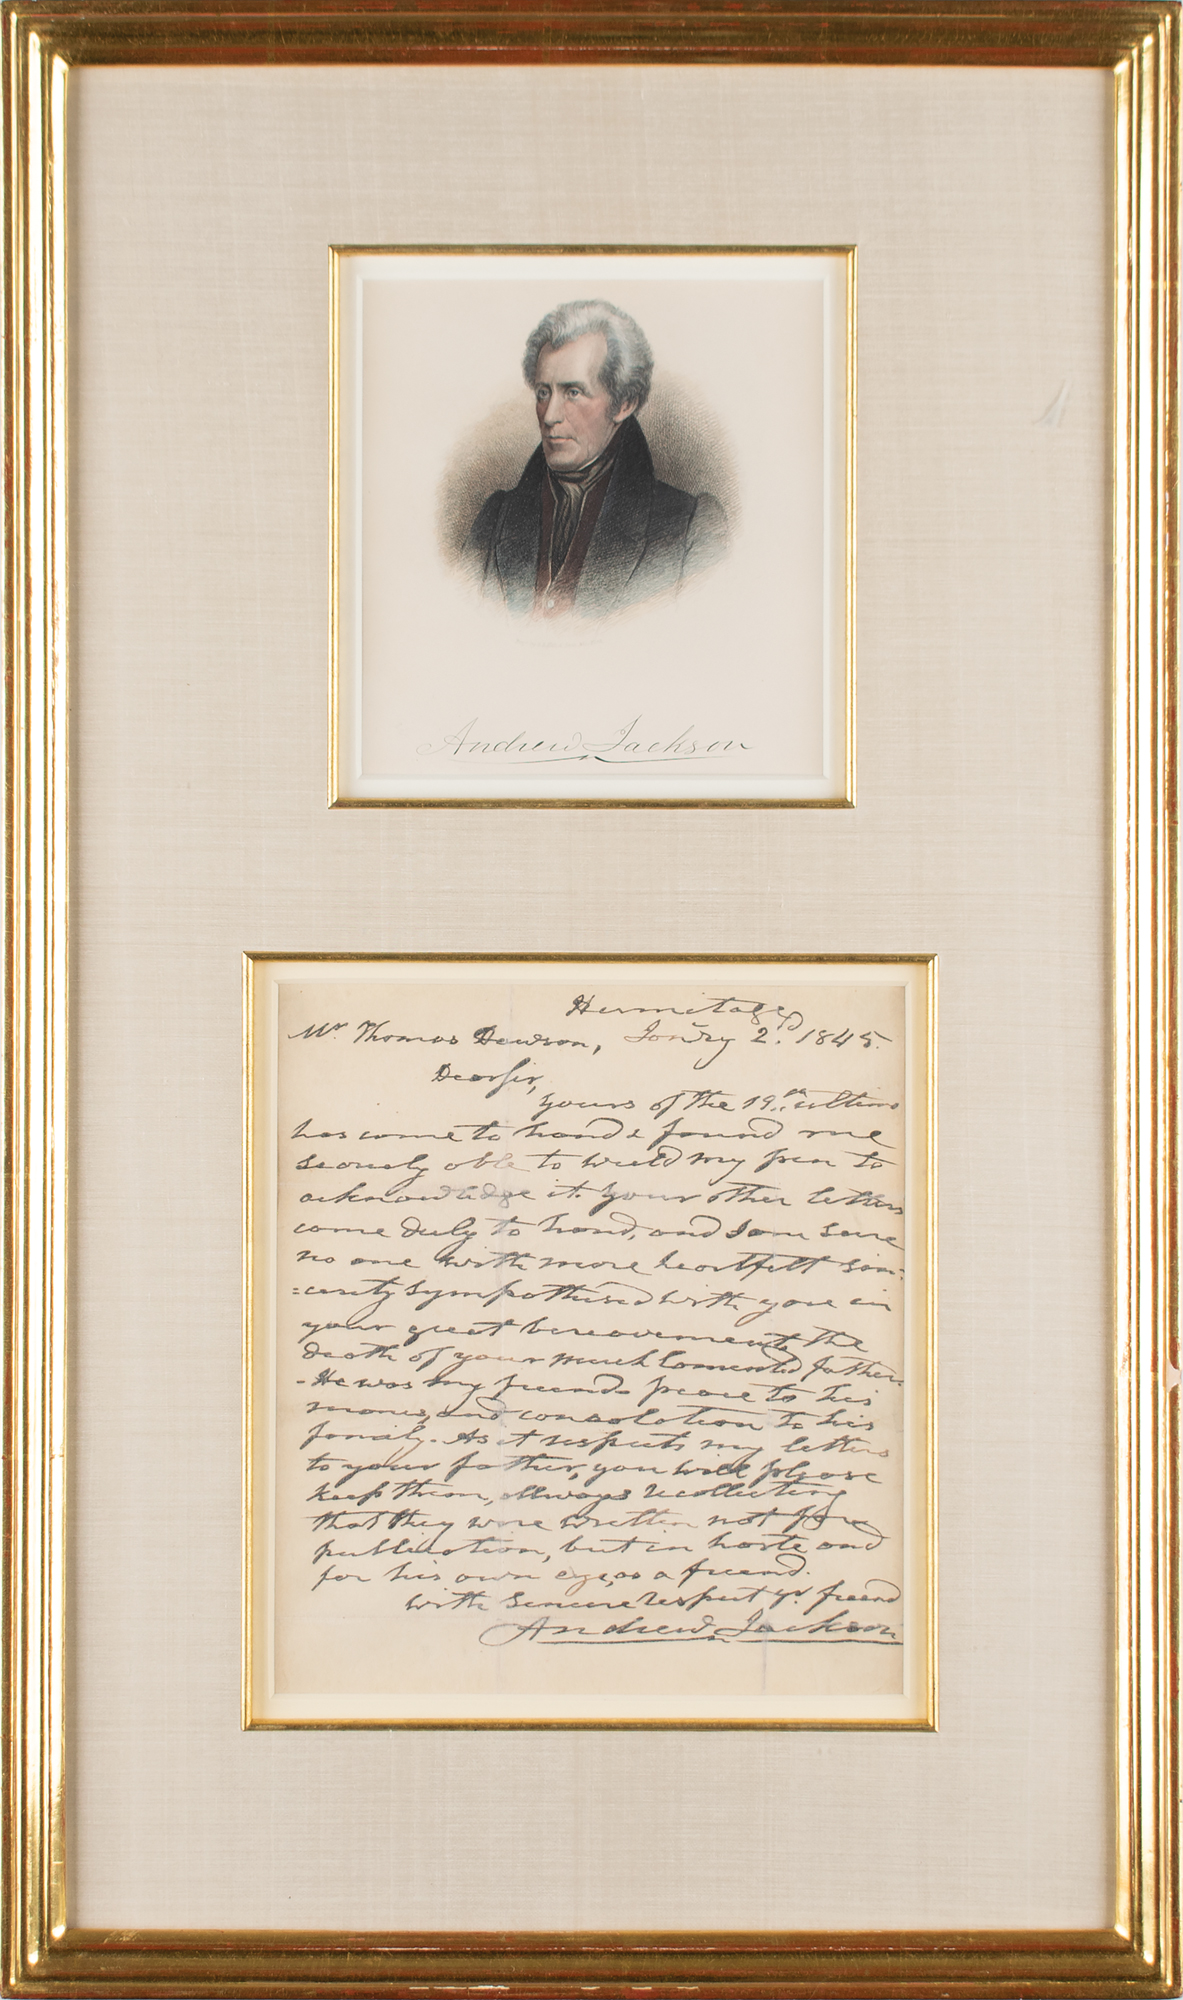 Andrew Jackson
Hermitage
Mr Thomas Dawson, Janry 2d. 1845.
Dear sir,
yours of the 19th. ultimo
has come to hand & found me
scarcely able to wield my pen to
acknowledge it. your other letters
came duly to hand, and I am sure
no one with more heartfelt sin:
=cerity sympathised with you in
your great bereavement, the
death of your much lamented father.
- He was my friend - peace to his
manes, and consolation to his
family. As it respects my letters
to your father, you will please
keep them, allways recollecting
that they were written not for
publication, but in haste and
for his own eye, as a friend.
with sincere respect yr. friend
Andrew Jackson